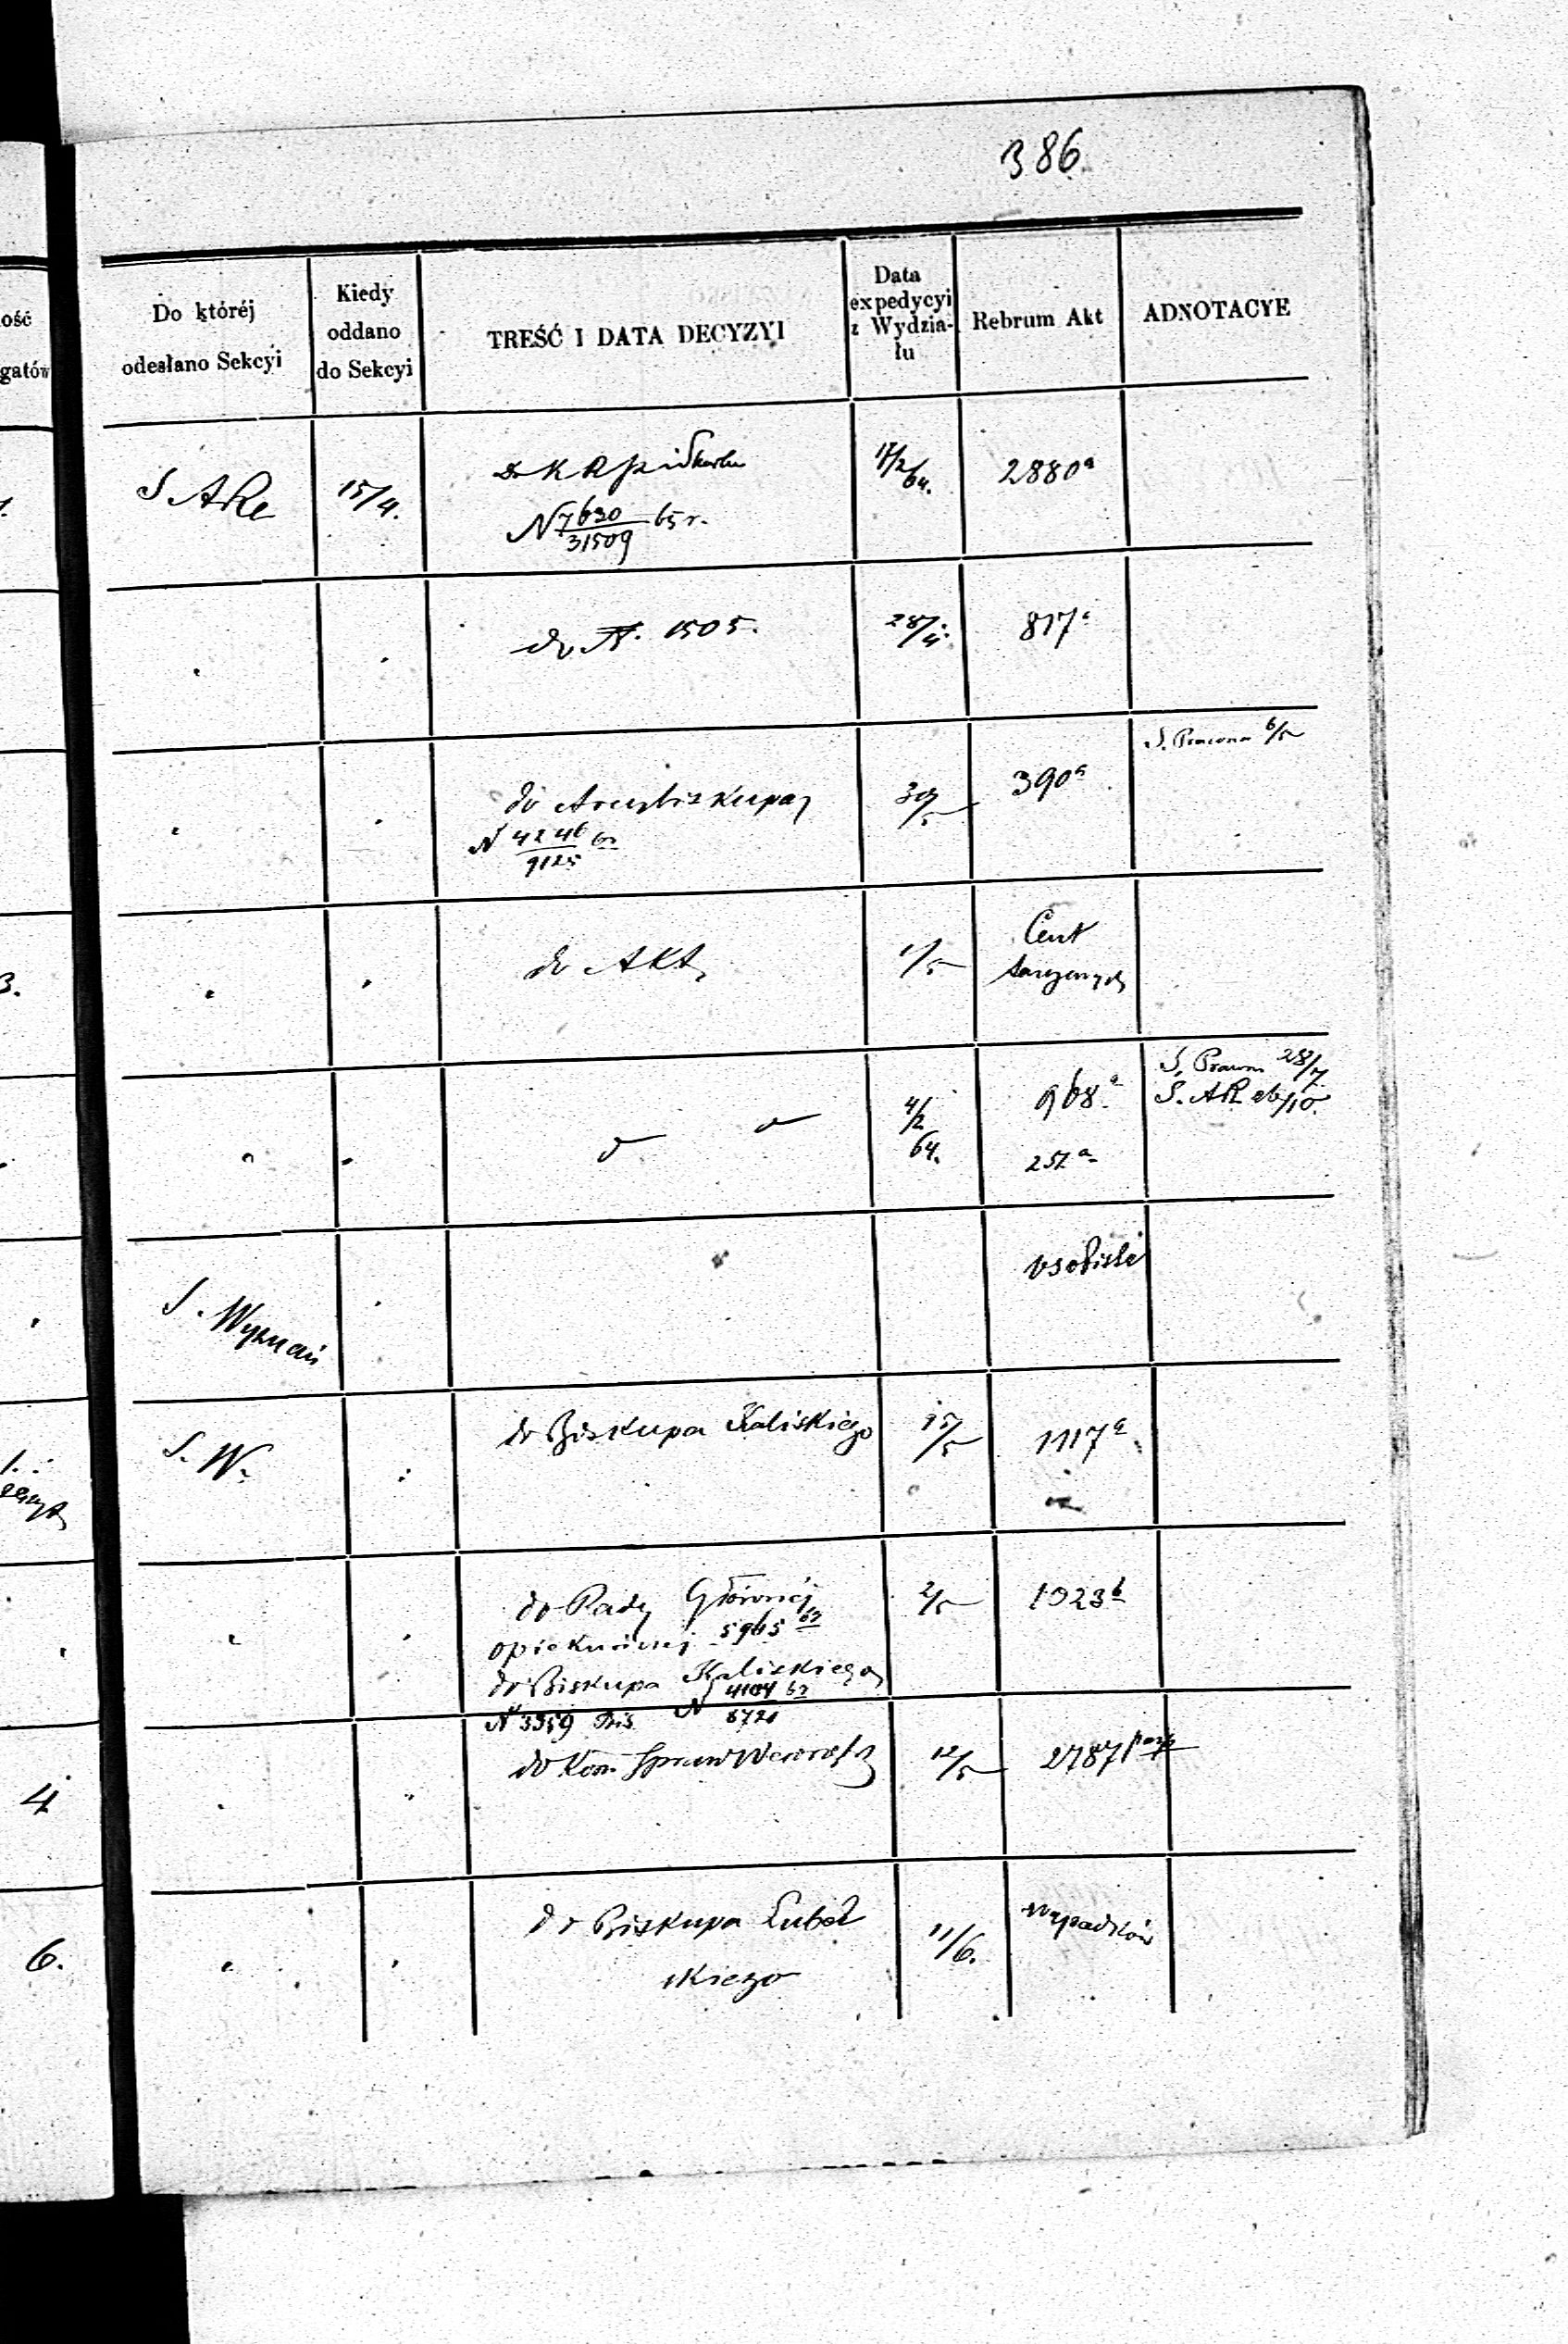 386.
ość
gatów
Do któréj
odesłano Sekcyi
Kiedy
oddano
do Sekcyi
TREŚĆ I DATA DECYZYI
Data
expedycyi
z Wydzia-
łu
Rebrum Akt
ADNOTACYE
S ARe
15/4.
do K R P i Skarbu
N 7630/31509 65 r.
17/2 64.
2880ª
do N. 1505.
28/4.
817ª
do Arcybiskupa
N 4246/9125 63
30/5
390ª
S. Prawna 6/5
3.
do Akt
1/5
Cent
4/2
64.
968ª
251ª
S. Prawn 28/7
S. AR 26/10.
S. Wyznań
osobiste
1.
S. W.
do Biskupa Kaliskiego
15/5
1117ª
do Rady Głównéj
opiekuńczej 5965 63
do Biskupa Kaliskiego
N 3359 Bis N 4104/8721 63
2/5
1023b
4
do Kom Spraw Wewnętrz
12/5
2787
6.
do Biskupa Lubel
skiego
11/6.
wypadków